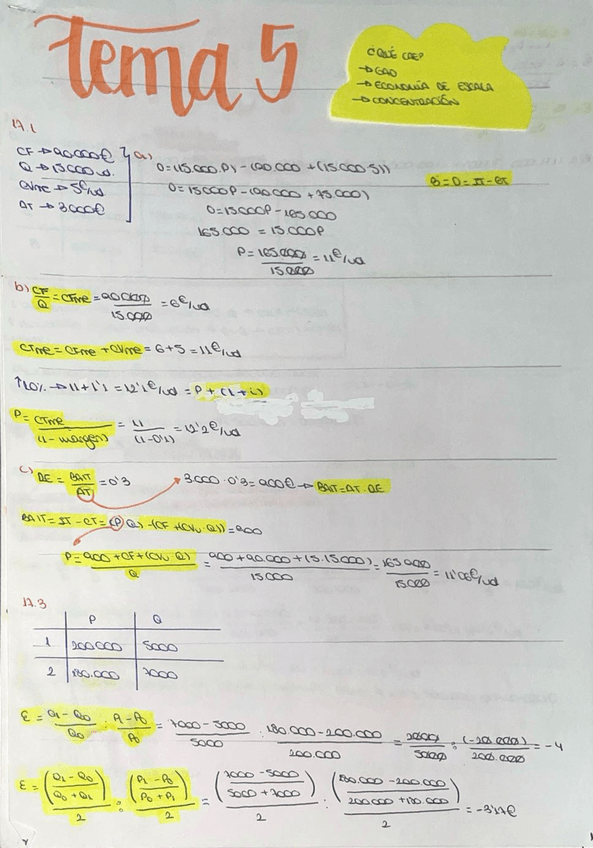 Tema 5
¿QUÉ CAE?
→ GAO
→ ECONOMÍA DE ESCALA
→ CONCENTRACIÓN
17.1
CF → 90.000€
Q → 15000 u.
CVme → 5€/ud
AT → 3000€
a)
0=(15.000.P) - (90.000 + (15.000.5))
0=15000P - (90.000 + 75.000)
0=15000P - 165.000
165.000 = 15.000P
P = 165.000 / 15.000 = 11€/ud
B=0=IT-CT
b) CF/Q = CFme = 90.000/15.000 = 6€/ud
CTme = CFme + CVme = 6+5 = 11€/ud
↑10% → 11+1'1 = 12'1€/ud = P + (1+i)
P = CTme/(1-margen) = 11/(1-0'1) = 12'2€/ud
c) RE = BAIT/AT = 0'3
3000 · 0'3 = 900€ → BAIT=AT.RE
BAIT = IT - CT = (P.Q) - (CF + (CVu.Q)) = 900
P = 900 + CF + (CVu.Q) / Q = 900 + 90.000 + (5.15000) / 15000 = 165900 / 15000 = 11'06€/ud
17.3
P Q
1 200000 5000
2 180.000 7000
E = Q1-Q0/Q0 : P1-P0/P0 = 7000-5000/5000 : 180.000-200.000/200.000 = 2000/5000 : (-20.000)/200.000 = -4
E = ((Q1-Q0)/(Q0+Q1)/2) : ((P1-P0)/(P0+P1)/2) = ((7000-5000)/(5000+7000)/2) : ((180.000-200.000)/(200.000+180.000)/2) = -3'17€